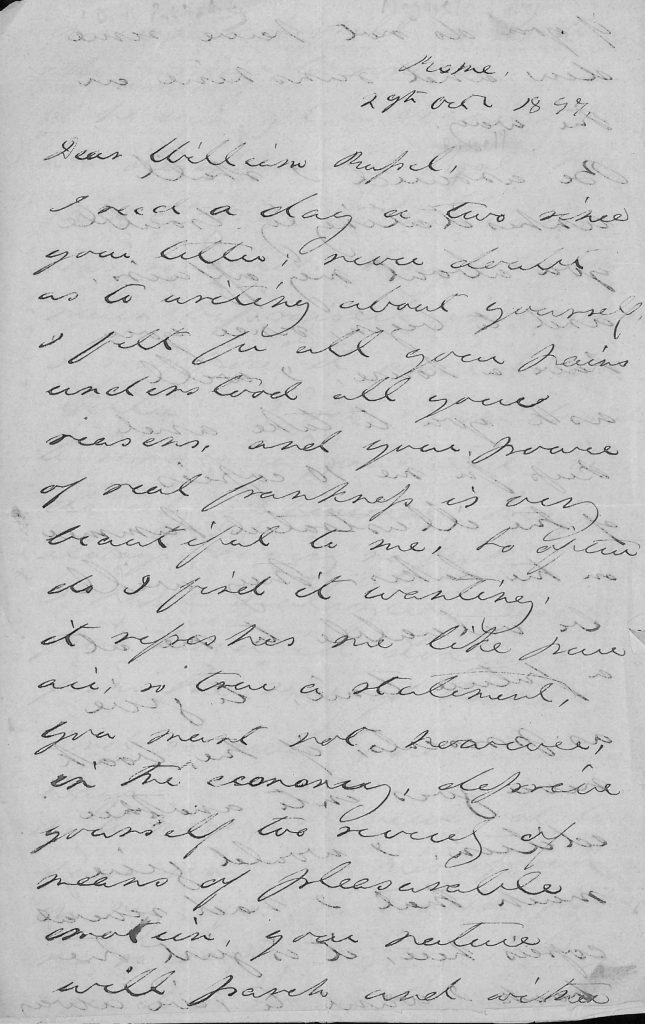 Rome.
29th Octr 18
Dear William Russel,
I recd a day or two since
your letter; never doubt
as to writing about yourself,
I felt for all your pains
understood all your
reasons, and your power
of real frankness is very
beautiful to me, so often
do I find it wanting,
it refreshes me like pure
air, so true a statement,
You must not however,
in the economy, deprive
yourself too much of
means of pleasurable
emotion, your nature
will parch and wither